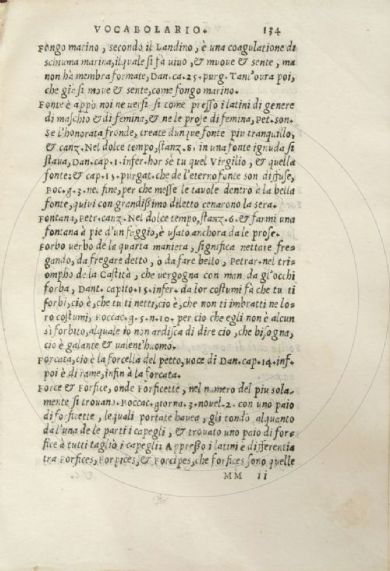 VOCABOLARIO. 134
Fongo marino, secondo il Landino, è una coagulatione di
schiuma marina, il quale si fà uiuo, & muoue & sente, ma
non hà membra formate, Dan. ca. 25. purg. Tant'oura poi,
che già si moue & sente, come fongo marino.
Fonte è appò noi ne uersi si come presso i latini di genere
di maschio & di femina, & ne le prose di femina, Pet. son.
Se l'honorata fronde, create dunque fonte piu tranquillo,
& canz. Nel dolce tempo, stanz. 8. in una fonte ignuda si
staua, Dan. cap. 1. infer. hor sè tu quel Virgilio, & quella
fonte: & cap. 15. purgat. che de l'eterno fonte son diffuse,
Boc. g. 3. ne. fine, per che messe le tauole dentro à la bella
fonte, quiui con grandissimo diletto cenarono la sera.
Fontana, Petr. canz. Nel dolce tempo, stanz. 6. & farmi una
fontana à piè d'un faggio, è usato anchora da le prose.
Forbo uerbo de la quarta maniera, significa nettare fre
gando, da fregare detto, o da fare bello, Petrar. nel tri
ompho de la Castità, che uergogna con man da gl'occhi
forba, Dant. capito. 15. infer. da lor costumi fà che tu ti
forbi, cio è, che tu ti netti, cio è, che non ti imbratti ne lo-
ro costumi, Boccac. g. 5. n. 10. per cio che egli non è alcun
sì forbito, al quale io non ardisca di dire cio, che bisogna,
cio è galante & ualent'huomo.
Forcata, cio è la forcella del petto, uoce di Dan. cap. 14. inf.
poi è di rame, infin à la forcata.
Force & Forfice, onde Forficette, nel numero del piu sola-
mente si trouan. Boccac. giorna. 3. nouel. 2. con uno paio
di forficette, le quali portate hauea, gli tondò alquanto
da l'una de le parti i capegli, & trouato uno paio di for-
fice à tutti tagliò i capegli: Appresso i latini è differentia
tra Forfices, Forpices, & Forcipes, che forfices sono quelle
MM II